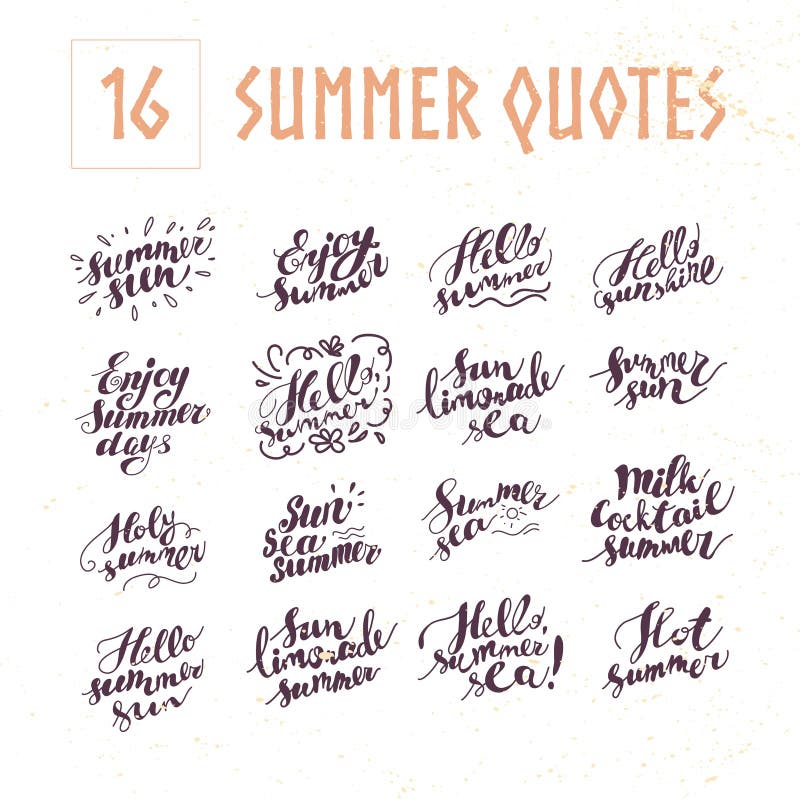 16 SUMMER QUOTES
summer
sun
Enjoy
summer
Hello
summer
Hello
sunshine
Enjoy
Summer
days
Hello,
summer
Sun
limonade
sea
Summer
sun
Holy
summer
Sun
sea
summer
Summer
sea
Milk
Cocktail
summer
Hello
summer
sun
Sun
limonade
summer
Hello,
summer
sea!
Hot
summer